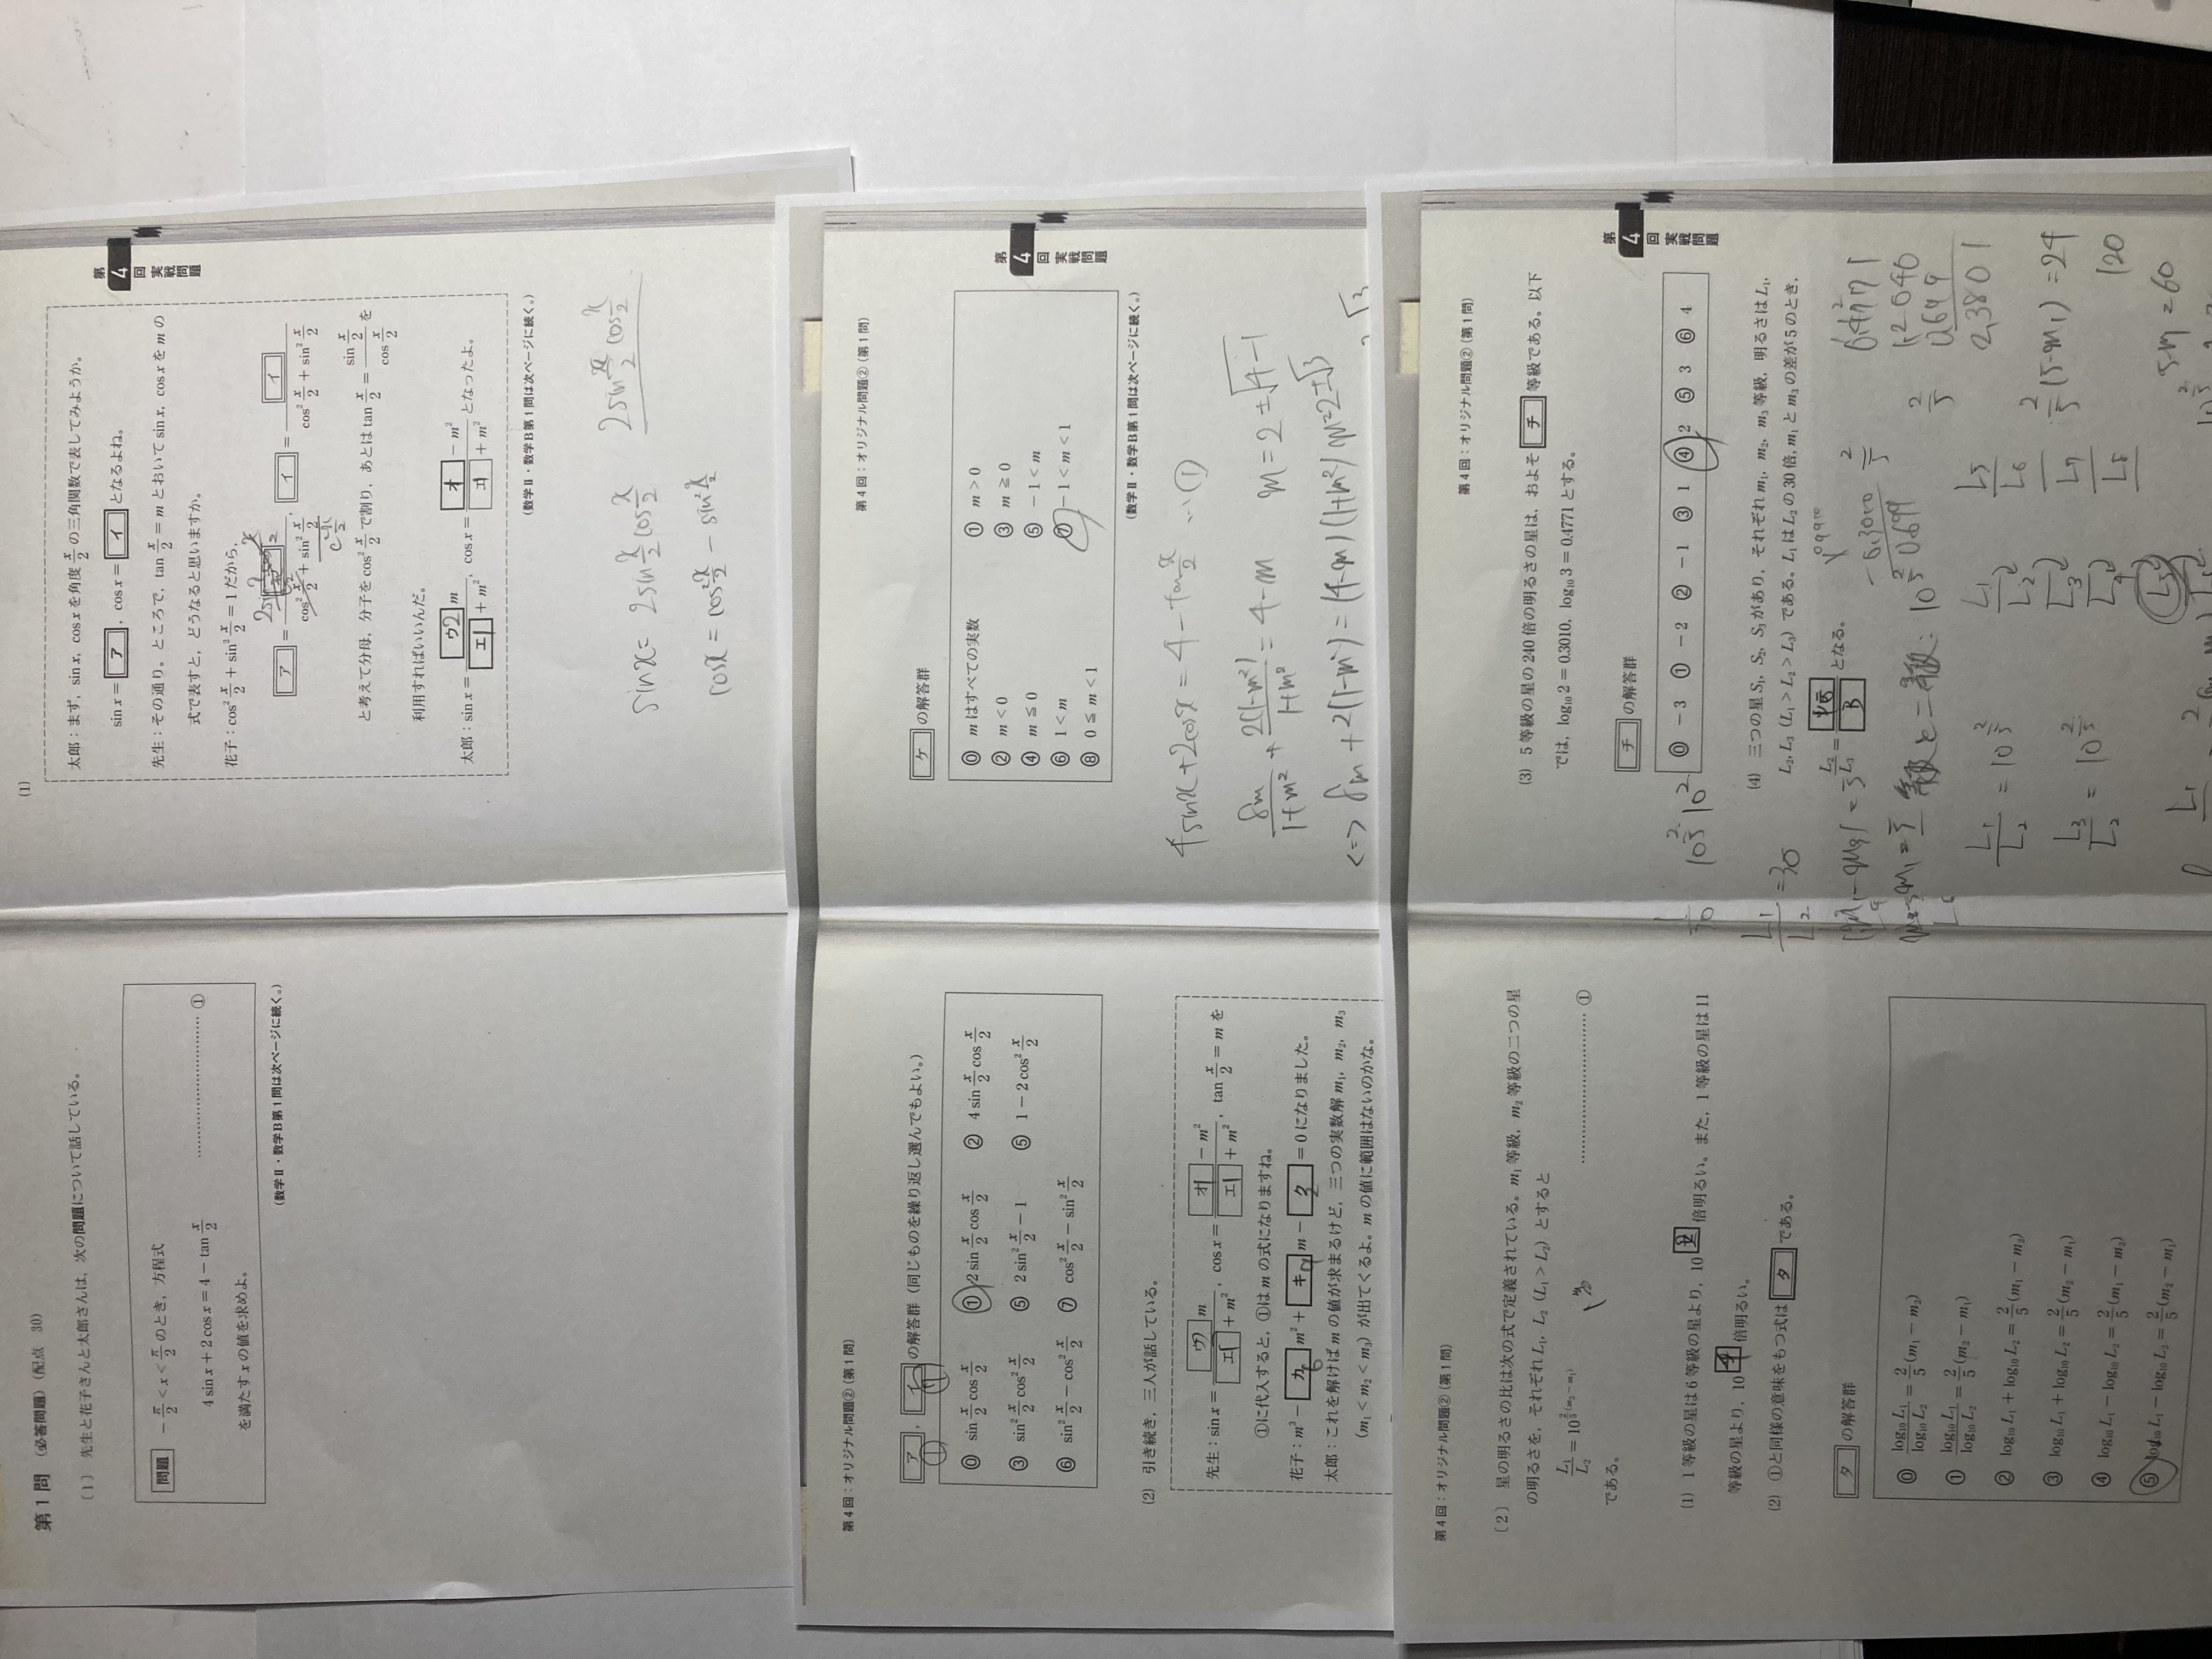 第1問 (必答問題) (配点 30)
〔1〕 先生と花子さんと太郎さんは、次の問題について話している。
問題 −π/2 < x < π/2 のとき、方程式
4 sin x + 2 cos x = 4 − tan x/2 ……… ①
を満たす x の値を求めよ。
(数学Ⅱ・数学B第1問は次ページに続く。)
(1)
太郎:まず、sin x, cos x を角度 x/2 の三角関数で表してみようか。
sin x = ア, cos x = イ となるよね。
先生:その通り。ところで、tan x/2 = m とおいて sin x, cos x を m の
式で表すと、どうなると思いますか。
花子:cos² x/2 + sin² x/2 = 1 だから、
ア = ア/(cos² x/2 + sin² x/2), イ = イ/(cos² x/2 + sin² x/2)
と考えて分母、分子を cos² x/2 で割り、あとは tan x/2 = (sin x/2)/(cos x/2) を
利用すればいいんだ。
太郎:sin x = ウ2 m/(エ1 + m²), cos x = (オ − m²)/(エ + m²) となったよ。
(数学Ⅱ・数学B第1問は次ページに続く。)
第4回実戦問題
sin x = 2 sin x/2 cos x/2
2 sin x/2 cos x/2
cos x = cos² x/2 − sin² x/2
第4回:オリジナル問題②(第1問)
ア, イ の解答群(同じものを繰り返し選んでもよい。)
⓪ sin x/2 cos x/2
① 2 sin x/2 cos x/2
② 4 sin x/2 cos x/2
③ sin² x/2 cos² x/2
⑤ 2 sin² x/2 − 1
⑤ 1 − 2 cos² x/2
⑥ sin² x/2 − cos² x/2
⑦ cos² x/2 − sin² x/2
(2) 引き続き、三人が話している。
先生:sin x = ウ m/(エ + m²), cos x = (オ − m²)/(エ + m²), tan x/2 = m を
①に代入すると、①は m の式になりますね。
花子:m³ − カ m² + キ m − ク = 0 になりました。
太郎:これを解けば m の値が求まるけど、三つの実数解 m₁, m₂, m₃
(m₁ < m₂ < m₃) が出てくるよ。m の値に範囲はないのかな。
第4回:オリジナル問題②(第1問)
ケ の解答群
⓪ m はすべての実数
① m > 0
② m < 0
③ m ≧ 0
④ m ≦ 0
⑤ −1 < m
⑥ 1 < m
⑦ −1 < m < 1
⑧ 0 ≦ m < 1
(数学Ⅱ・数学B第1問は次ページに続く。)
第4回実戦問題
4 sin x + 2 cos x = 4 − tan x/2 … ①
8m/(1+m²) + 2(1−m²)/(1+m²) = 4 − m
m = 2 ± √4−1
<=> 8m + 2(1−m²) = (4−m)(1+m²)
m = 2 ± √3
第4回:オリジナル問題②(第1問)
〔2〕 星の明るさの比は次の式で定義されている。m₁ 等級、m₂ 等級の二つの星
の明るさを、それぞれ L₁, L₂ (L₁ > L₂) とすると
L₁/L₂ = 10^(2/5 (m₂ − m₁)) ……… ①
である。
(1) 1 等級の星は 6 等級の星より、10 コ 倍明るい。また、1 等級の星は 11
等級の星より、10 サ 倍明るい。
(2) ①と同様の意味をもつ式は タ である。
タ の解答群
⓪ log₁₀ L₁/log₁₀ L₂ = 2/5 (m₁ − m₂)
① log₁₀ L₁/log₁₀ L₂ = 2/5 (m₂ − m₁)
② log₁₀ L₁ + log₁₀ L₂ = 2/5 (m₁ − m₂)
③ log₁₀ L₁ + log₁₀ L₂ = 2/5 (m₂ − m₁)
④ log₁₀ L₁ − log₁₀ L₂ = 2/5 (m₁ − m₂)
⑤ log₁₀ L₁ − log₁₀ L₂ = 2/5 (m₂ − m₁)
第4回:オリジナル問題②(第1問)
(3) 5 等級の星の 240 倍の明るさの星は、およそ チ 等級である。以下
では、log₁₀ 2 = 0.3010, log₁₀ 3 = 0.4771 とする。
チ の解答群
⓪ −3 ① −2 ② −1 ③ 1 ④ 2 ⑤ 3 ⑥ 4
(4) 三つの星 S₁, S₂, S₃ があり、それぞれ m₁, m₂, m₃ 等級、明るさは L₁,
L₂, L₃ (L₁ > L₂ > L₃) である。L₁ は L₂ の 30 倍、m₁ と m₃ の差が 5 のとき、
L₂/L₃ = となる。
第4回実戦問題
L₁/L₂ = 30
L₁/L₂ = 10^(2/5)
L₃/L₂ = 10^(2/5)
2/5 (5−m₁) = 24
120
5−m = 60
2.3801